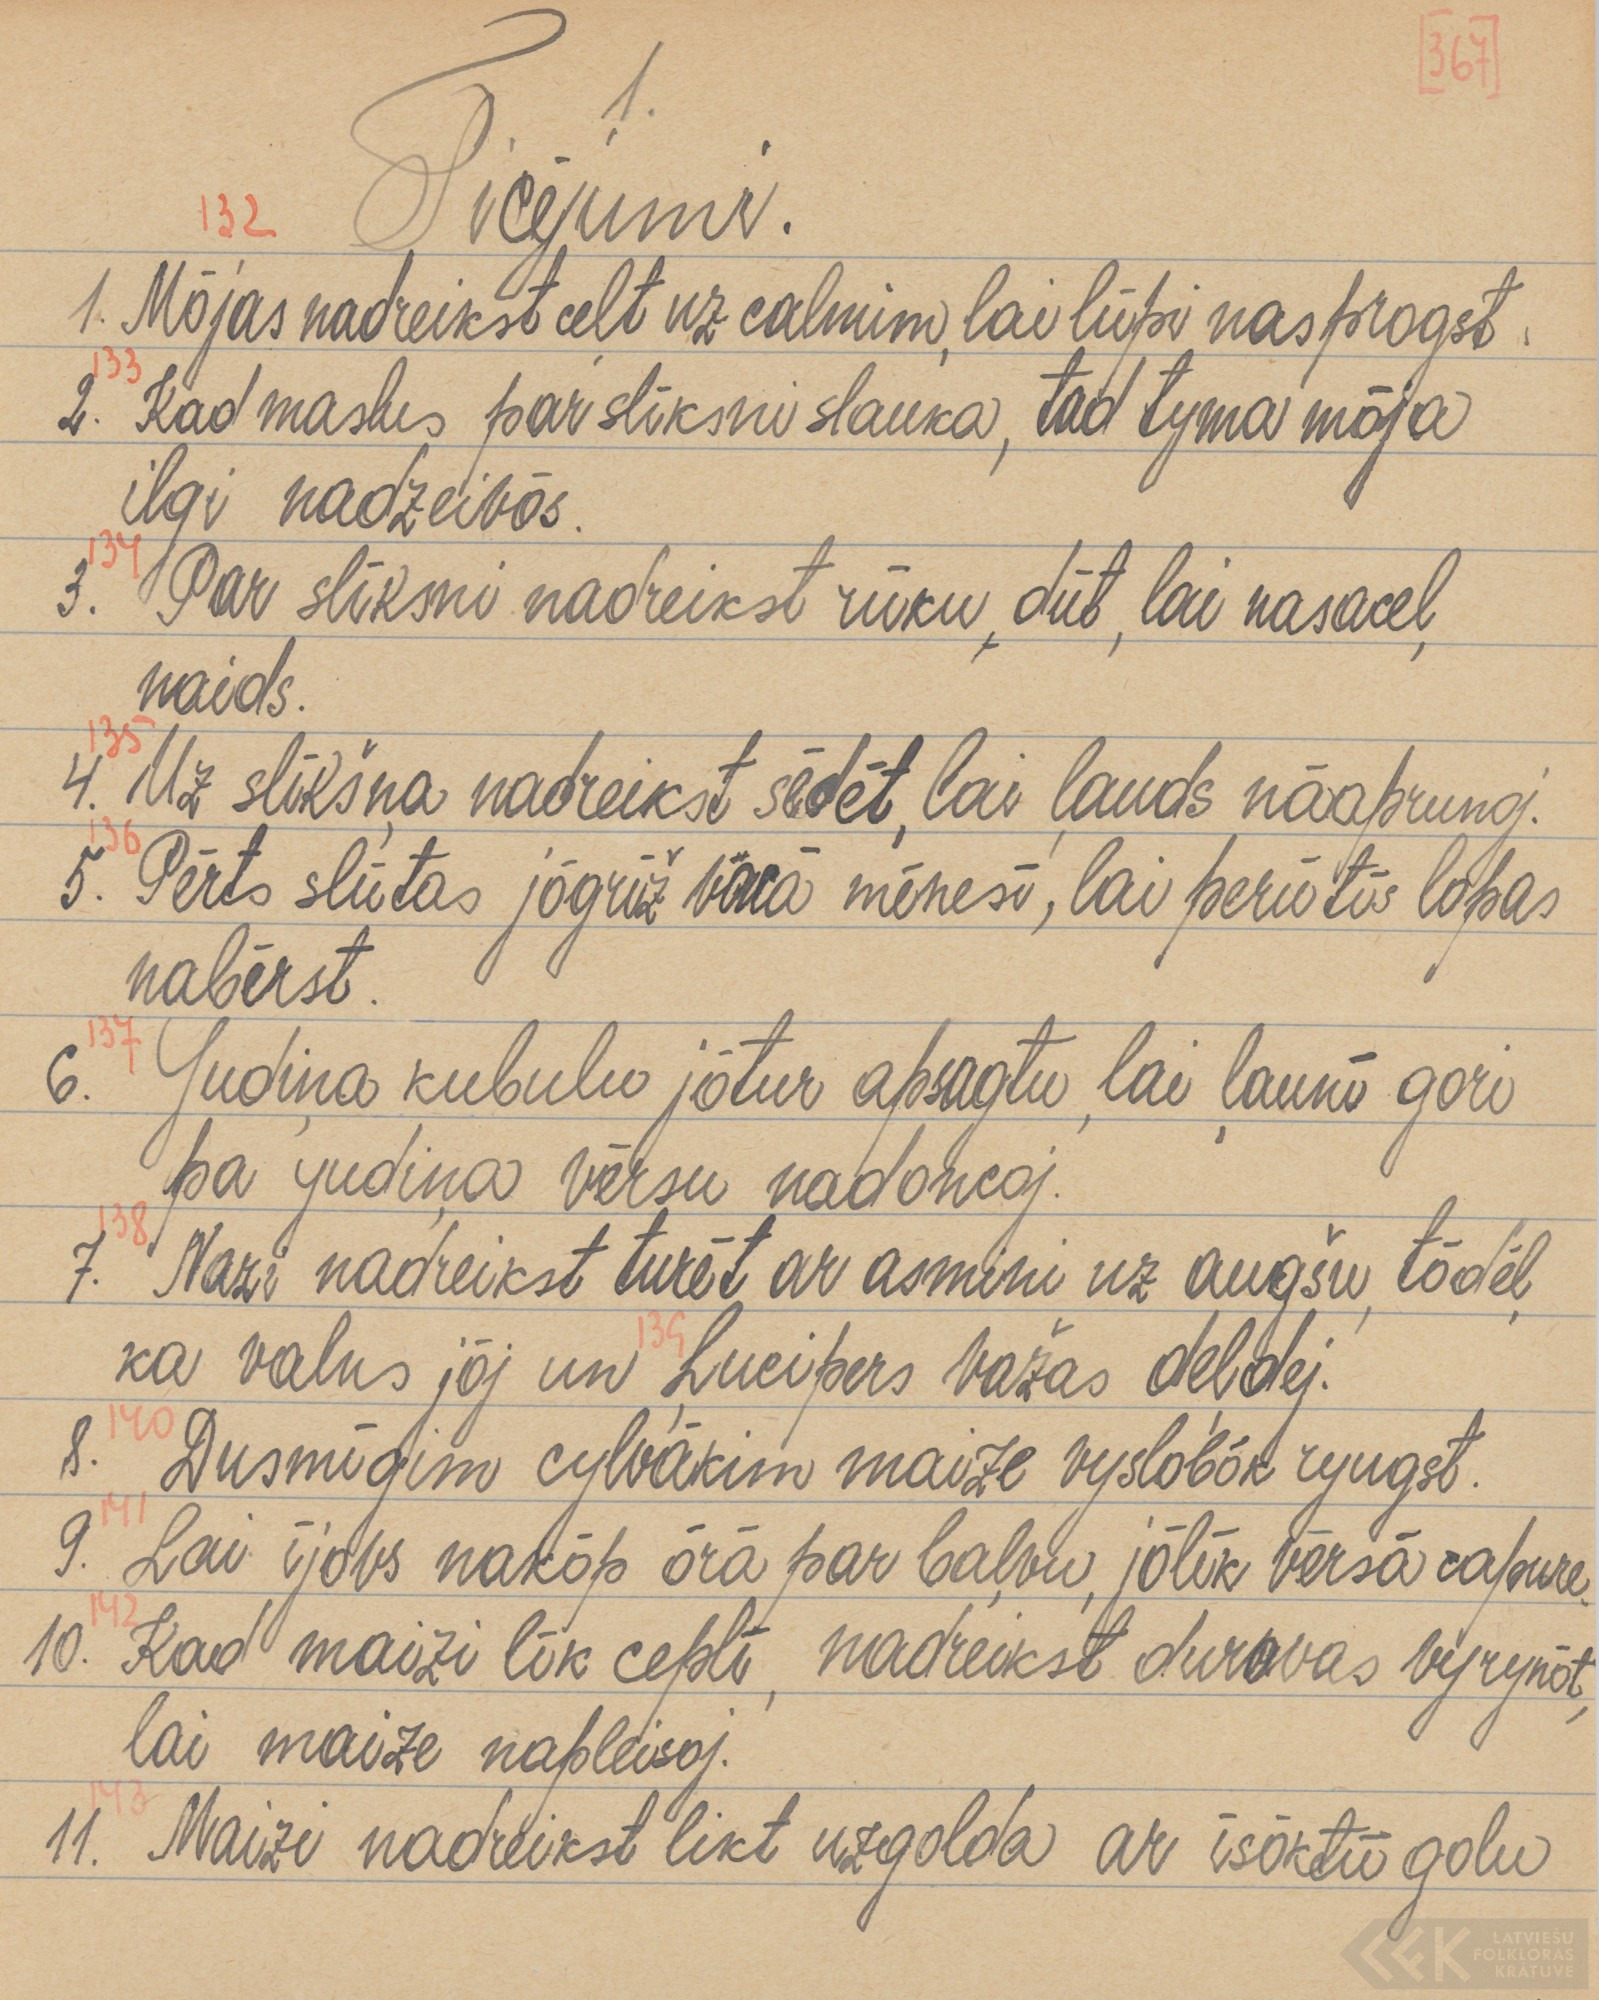 [367]
1.
Ticējumi.
132
1. Mōjas nadreikst celt uz calmim, lai lūpi nasprogst.
133
2. Kad maslus par slīksni slauka, tad tyma mōja
ilgi nadzeivōs.
134
3. Par slīksni nadreikst rūku, dūt, lai nasaceļ
naids.
135
4. Uz slīkšņa nadreikst sēdēt, lai ļauds nāaprunoj.
136
5. Pērts slūtas jōgrīž vacā mēnesī, lai perūtūs lopas
nabērst.
137
6. Yudiņa kubulu jōtur apsagtu, lai ļauni gori
pa yudiņa vērsu nadoncoj.
138
7. Nazi nadreikst turēt ar asmini uz augšu, tōdēļ,
ka valns jōj un 139 Ļucipers važas deļdej.
140
8. Dusmīgim cylvākim maize vyslobōk ryugst.
141
9. Lai ījovs nakōp ōrā par baļvu, jōlīk vērsā capure.
142
10. Kad maizi līk ceplī, nadreikst durovas vyrynōt,
lai maize napleisoj.
143
11. Maizi nadreikst likt uzgolda ar īsōktū golu
LATVIEŠU
FOLKLORAS
KRĀTUVE